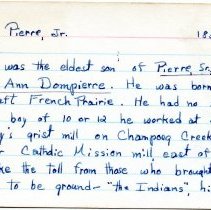 Pierre, Jr. 18
was the eldest son of Pierre, Sr,
Ann Dompierre. He was born
aft French Prairie. He had no
boy of 10 or 12 he worked at
y's grist mill on Champoeg Creek
Catholic Mission mill, east of
ke the toll from those who brought
to be ground- "the Indians", hi